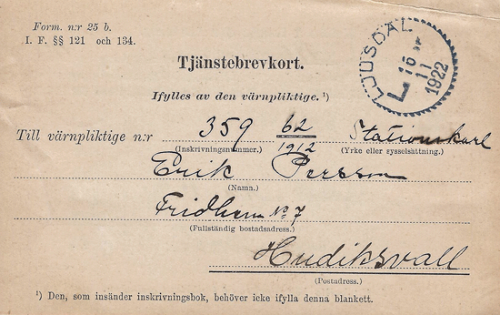 Form. n:r 25 b.
I. F. §§ 121 och 134.
LJUSDAL
16
11
1922
Tjänstebrevkort.
Ifylles av den värnpliktige.¹)
Till värnpliktige n:r 359 62/1912 Stationskarl
(Inskrivningsnummer.) (Yrke eller sysselsättning.)
Erik Persson
(Namn.)
Fridhem No 7
(Fullständig bostadsadress.)
Hudiksvall
(Postadress.)
¹) Den, som insänder inskrivningsbok, behöver icke ifylla denna blankett.